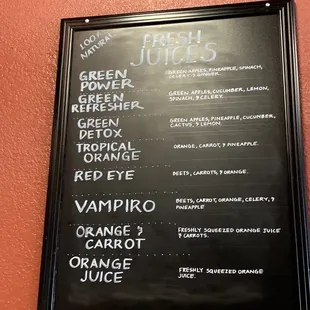 100% NATURAL
FRESH
JUICES
GREEN
POWER
GREEN APPLES, PINEAPPLE, SPINACH,
CELERY & GINGER.
GREEN
REFRESHER
GREEN APPLES, CUCUMBER, LEMON,
SPINACH, & CELERY.
GREEN
DETOX
GREEN APPLES, PINEAPPLE, CUCUMBER,
CACTUS, & LEMON.
TROPICAL
ORANGE
ORANGE, CARROT, & PINEAPPLE.
RED EYE
BEETS, CARROTS, & ORANGE.
VAMPIRO
BEETS, CARROT, ORANGE, CELERY, &
PINEAPPLE
ORANGE &
CARROT
FRESHLY SQUEEZED ORANGE JUICE
& CARROTS.
ORANGE
JUICE
FRESHLY SQUEEZED ORANGE
JUICE.